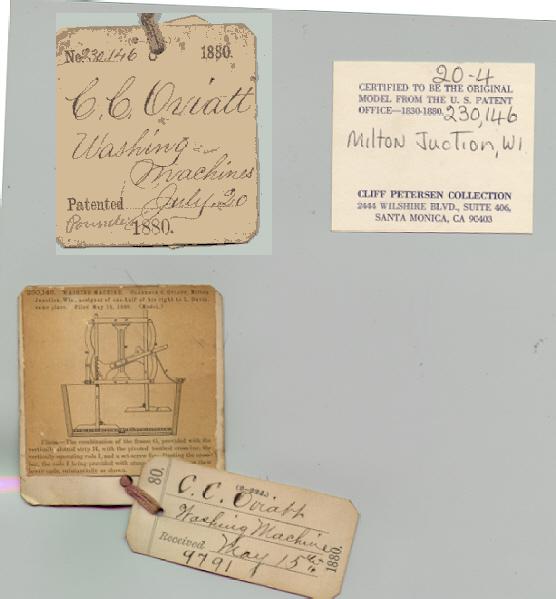 (2-224)
No. 230,146 1880.
C. C. Oviatt
Washing
Machines
Patented July. 20
1880.
20-4
CERTIFIED TO BE THE ORIGINAL
MODEL FROM THE U. S. PATENT
OFFICE—1830-1880. 230,146
Milton Juction, WI
CLIFF PETERSEN COLLECTION
2444 WILSHIRE BLVD., SUITE 406,
SANTA MONICA, CA 90403
230,146. WASHING MACHINE. CLARENCE C. OVIATT, Milton
Junction, Wis., assignor of one-half of his right to L. Davis,
same place. Filed May 15, 1880. (Model.)
Claim.—The combination of the frame G, provided with the
vertically slotted strip H, with the pivoted toothed cross-bar, the
vertically-operating rods I, and a set-screw for
bar, the rods I being provided with
lower ends, substantially as shown.
80.
(2-224)
C. C. Oviatt
Washing Machine
Received May 15th
1880.
9791